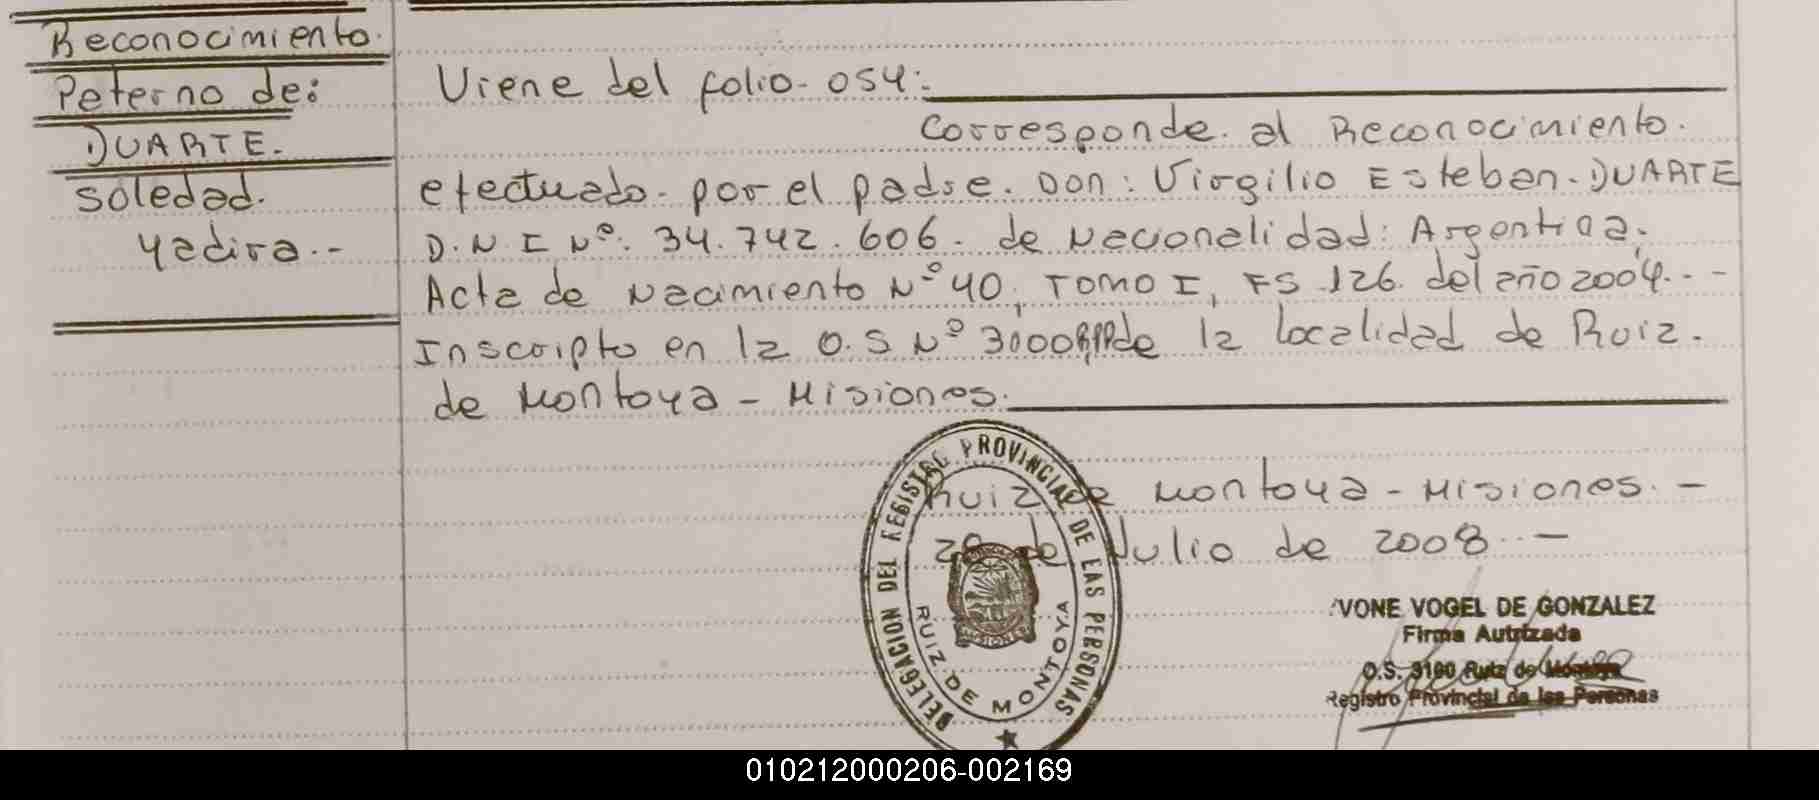 Reconocimiento.
Paterno de:
DUARTE.
Soledad.
Yadira.-
Viene del folio- 054:
Corresponde. al Reconocimiento.
efectuado- por el padre. Don: Virgilio Esteban- DUARTE
D.N.I Nº: 34.742.606- de Nacionalidad: Argentina.
Acta de Nacimiento Nº 40, Tomo I, FS 126. del año 2004.--
Inscripto en la O.S Nº de la localidad de Ruiz.
de Montoya - Misiones.
Ruiz de Montoya - Misiones. -
de Julio de 2008.-
DELEGACION DEL REGISTRO PROVINCIAL DE LAS PERSONAS
RUIZ DE MONTOYA
MISIONES
VONE VOGEL DE GONZALEZ
Firma Autrizada
O.S. 3100 Ruiz de Montoya
Registro Provincial de las Personas
010212000206-002169